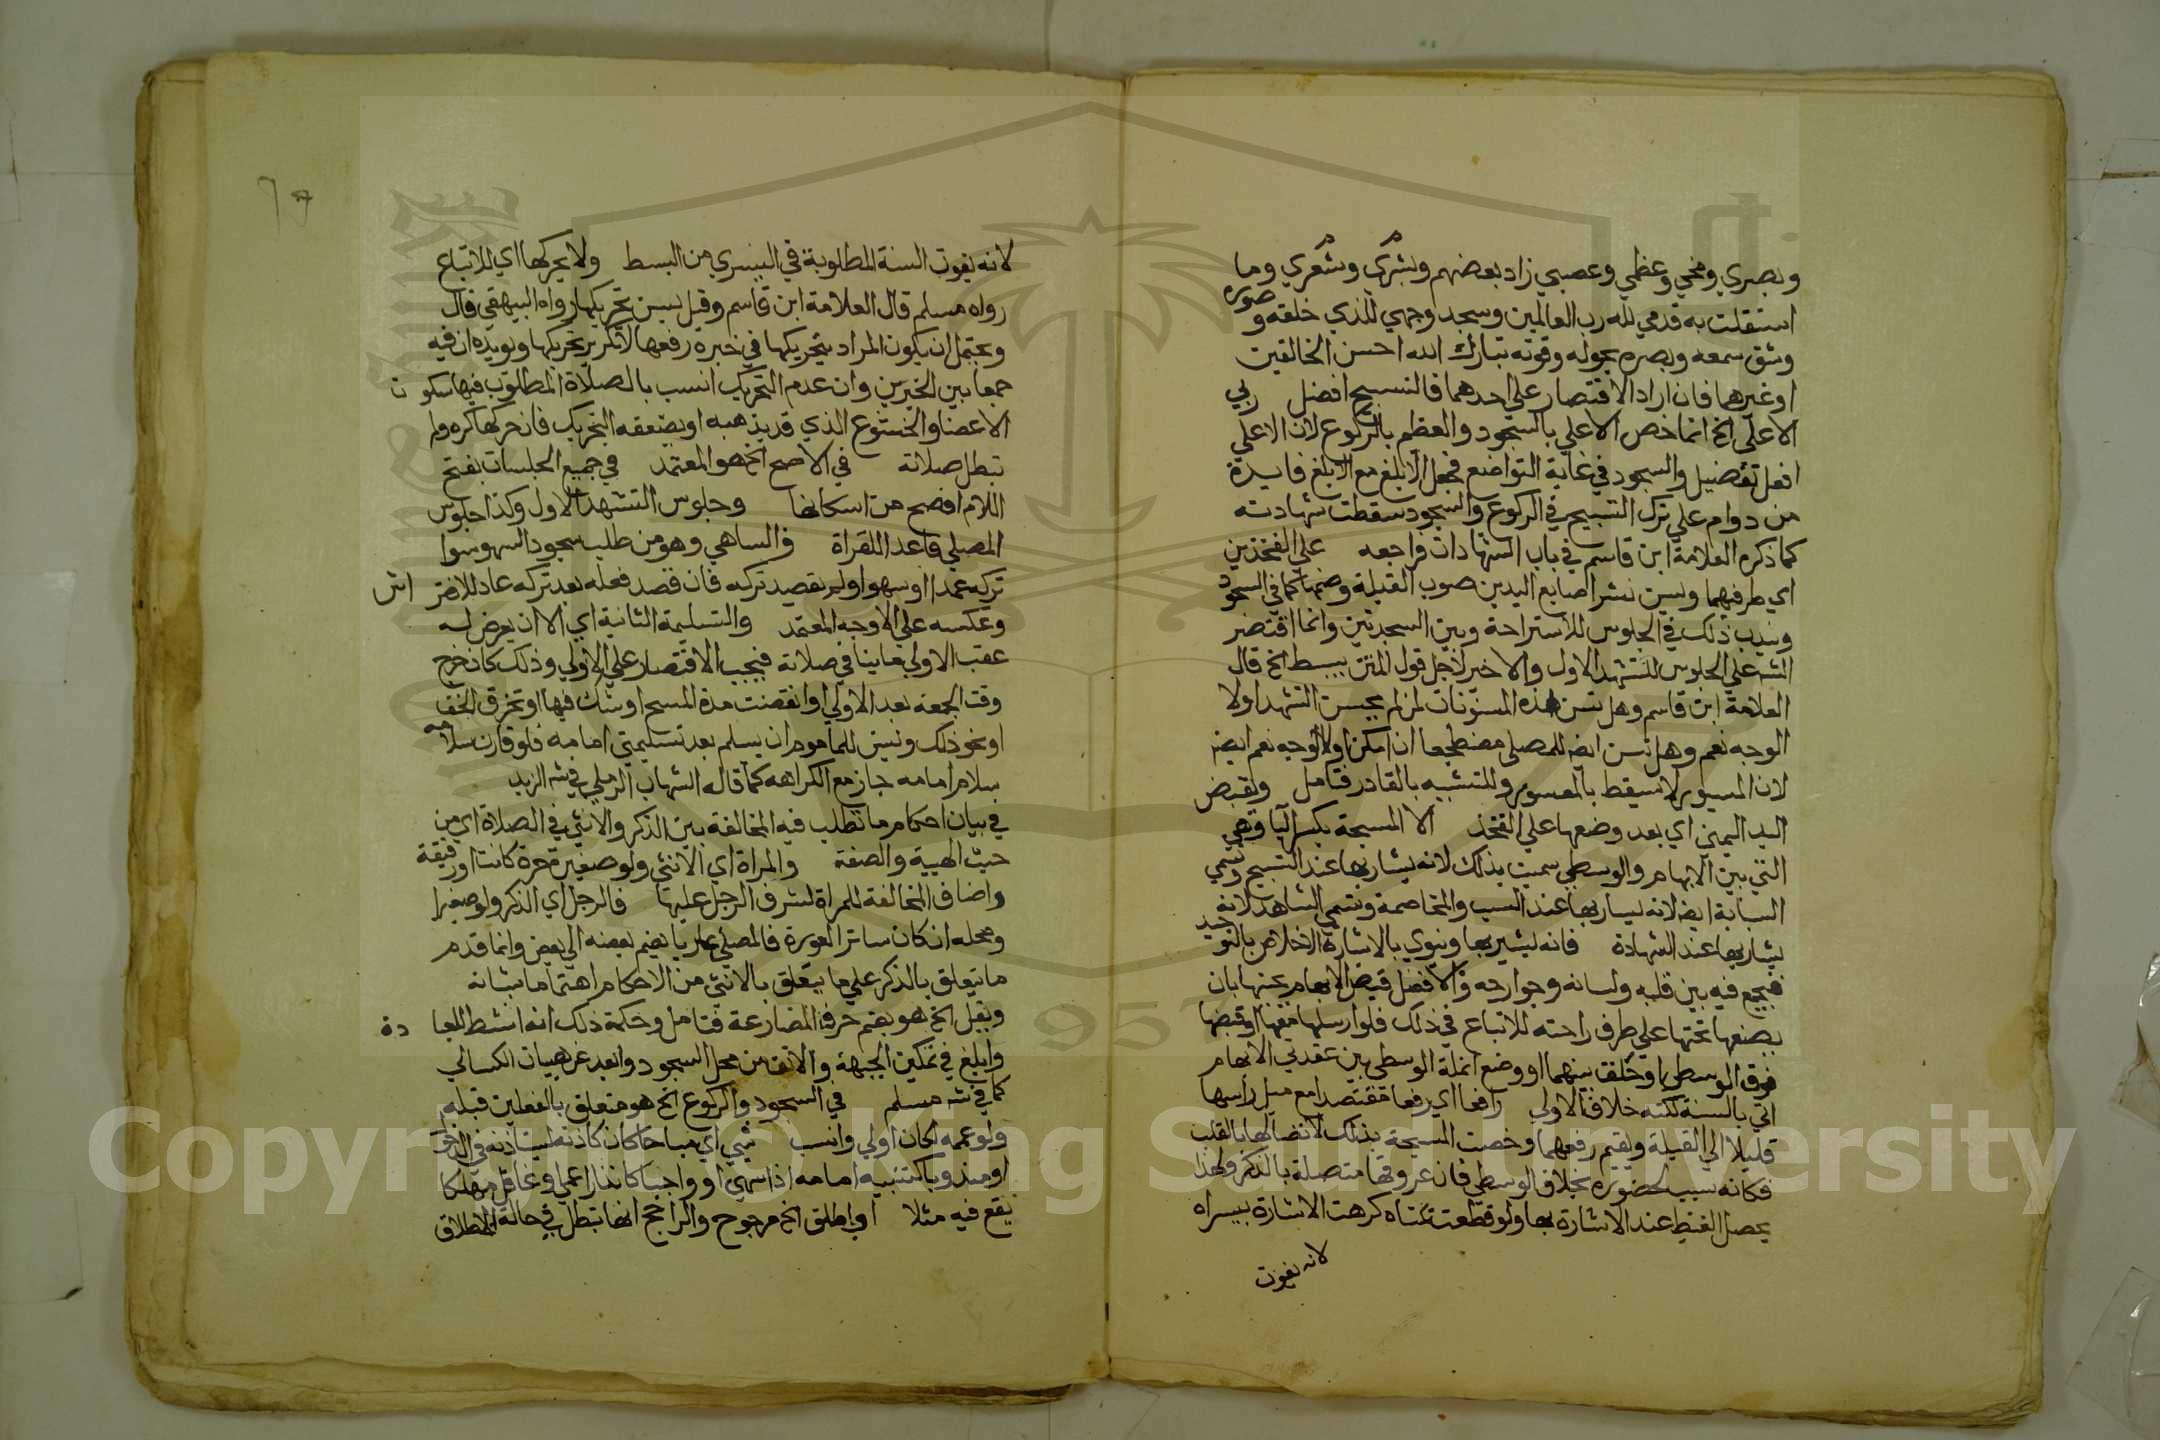 وبصري ومخي وعظمي وعصبي زاد بعضهم وبشري وشعري وما
استقلت به قدمي لله رب العالمين وسجد وجهي للذي خلقه وصوره
وشق سمعه وبصره بحوله وقوته تبارك الله احسن الخالقين
او غيرهما فان اراد الاقتصار علي احدهما فالتسبيح افضل ربي
الاعلي الخ انما خص الاعلي بالسجود والعظيم بالركوع لان الاعلي
افعل تفضيل والسجود في غاية التواضع فجعل الابلغ مع الابلغ فايدة
من دوام علي ترك التسبيح في الركوع والسجود سقطت شهادته
كما ذكره العلامة ابن قاسم في باب الشهادات فراجعه علي الفخذين
اي طرفيهما ويسن نشر اصابع اليدين صوب القبلة وضمها كما في السجود
ويندب ذلك في الجلوس للاستراحة وبين السجدتين وانما اقتصر
الشه علي الجلوس للتشهد الاول والاخير لاجل قول المتن يبسط الخ قال
العلامة ابن قاسم وهل تسن هذه المسنونات لمن لم يحسن التشهد اولا
الوجه نعم وهل تسن ايضا للمصلي مضطجعا ان امكن اولا الوجه نعم ايضا
لان الميسور لا يسقط بالمعسور وللتشبيه بالقادر فتامل ويقبض
اليد اليمني اي بعد وضعها علي الفخذ الا المسبحة بكسر البا وهي
التي بين الابهام والوسطي سميت بذلك لانه يشار بها عند التسبيح وتسمي
السبابة ايضا لانه يسار بها عند السب والمخاصمة وتسمي الشاهد لانه
يشار بها عند الشهادة فانه يشير بها وينوي بالاشارة الاخلاص بالتوحيد
فيجمع فيه بين قلبه ولسانه وجوارحه والافضل قبض الابهام بجنبها بان
يضعها تحتها علي طرف راحته للاتباع في ذلك فلو ارسلها معها او قبضها
فوق الوسطي او حلق بينهما او وضع انملة الوسطي بين عقدتي الابهام
اتي بالسنة لكنه خلاف الاولي رافعا اي رفعا مقتصدا مع ميل راسها
قليلا الي القبلة ويقيم رفعهما وخصت المسبحة بذلك لاتصالها بالقلب
فكانه سبب لحضوره بخلاف الوسطي فان عروقها متصلة بالذكر ولهذا
يحصل الغيظ عند الاشارة بها ولو قطعت يمناه كرهت الاشارة بيسراه
لانه يفوت
لانه يفوت السنة المطلوبة في اليسري من البسط ولا يحركها اي للاتباع
رواه مسلم قال العلامة ابن قاسم وقيل يسن تحريكها رواه البيهقي قال
ويحتمل ان يكون المراد بتحريكها في خبره رفعها لا تكرير تحريكها ويويده ان فيه
جمعا بين الخبرين وان عدم التحريك انسب بالصلاة المطلوب فيها سكون
الاعضا والخشوع الذي قد يذهبه او يضعفه التحريك فان حركها كره ولم
تبطل صلاته في الاصح الخ هو المعتمد في جميع الجلسات بفتح
اللام افصح من اسكانها وجلوس التشهد الاول وكذا جلوس
المصلي قاعدا للقراة والساهي وهو من طلب سجود السهو سوا
تركه عمدا او سهوا ولم يقصد تركه فان قصد فعله بعد تركه عاد للافتراش
وعكسه علي الاوجه المعتمد والتسليمة الثانية اي الا ان يعرض له
عقب الاولي ما ينافي صلاته فيجب الاقتصار علي الاولي وذلك كان خرج
وقت الجمعة بعد الاولي او انقضت مدة المسح او شك فيها او تخرق الخف
او نحو ذلك ويسن للماموم ان يسلم بعد تسليمتي امامه فلو قارن سلامه
سلام امامه جاز مع الكراهة كما قاله الشهاب الرملي في شه الزبد
في بيان احكام ما تطلب فيه المخالفة بين الذكر والانثي في الصلاة اي من
حيث الهيية والصفة والمراة اي الانثي ولو صغيرة حرة كانت او رقيقة
واضاف المخالفة للمراة لشرف الرجل عليها فالرجل اي الذكر ولو صغيرا
ومحله ان كان ساترا لعورة فالمصلي عاريا يضم بعضه الي بعض وانما قدم
ما يتعلق بالذكر علي ما يتعلق بالانثي من الاحكام اهتماما بشانه
ويقل الخ هو بضم حرف المضارعة فتامل وحكمة ذلك انه انشط للعبادة
وابلغ في تمكين الجبهة والانف من محل السجود وابعد عن هيات الكسالي
كما في شه مسلم في السجود والركوع الخ هو متعلق بالفعلين قبله
ولو عممه لكان اولي وانسب شيي اي مباحا كان كاذنه لمستاذنه في الدخول
او مندوبا كتنبيه امامه اذا سهي او واجبا كانذار اعمي او غافل مهلكا
يقع فيه مثلا او اطلق الخ مرجوح والراجح انها تبطل في حالة الاطلاق